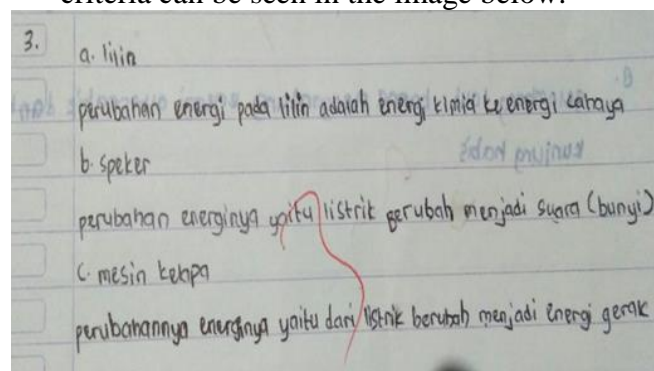 criteria can be seen in the image below.
3.
a. lilin
perubahan energi pada lilin adalah energi kimia ke energi cahaya
b. speker
perubahan energinya yaitu listrik berubah menjadi suara (bunyi)
C. mesin kelapa
perubahannya energinya yaitu dari listrik berubah menjadi energi gerak